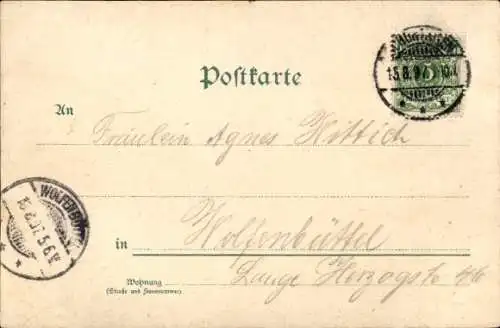 Postkarte
15.8.97.
5
An
Fräulein Agnes Wittich
WOLFENBÜTTEL
5-6 N
in Wolfenbüttel
Wohnung
(Straße und Hausnummer)
Lange Herzogstr.